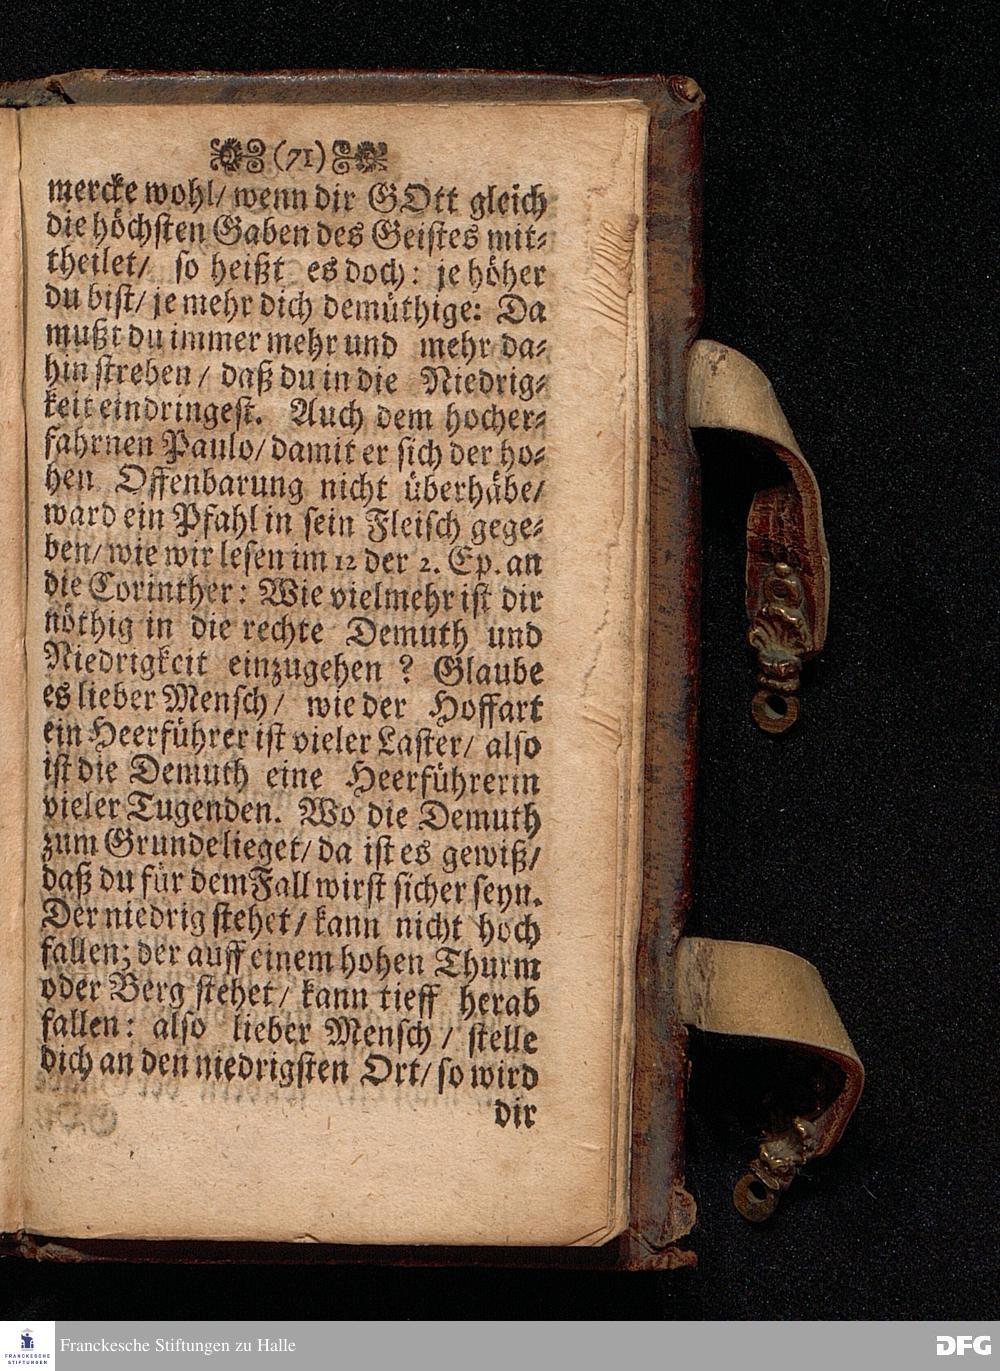 (71)
mercke wohl/ wenn dir GOtt gleich
die höchsten Gaben des Geistes mit-
theilet/ so heißt es doch: je höher
du bist/ je mehr dich demüthige: Da
mußt du immer mehr und mehr da-
hin streben/ daß du in die Niedrig-
keit eindringest. Auch dem hocher-
fahrnen Paulo/ damit er sich der ho-
hen Offenbarung nicht überhäbe/
ward ein Pfahl in sein Fleisch gege-
ben/ wie wir lesen im 12 der 2. Ep. an
die Corinther: Wie vielmehr ist dir
nöthig in die rechte Demuth und
Niedrigkeit einzugehen? Glaube
es lieber Mensch/ wie der Hoffart
ein Heerführer ist vieler Laster/ also
ist die Demuth eine Heerführerin
vieler Tugenden. Wo die Demuth
zum Grunde lieget/ da ist es gewiß/
daß du für dem Fall wirst sicher seyn.
Der niedrig stehet/ kann nicht hoch
fallen; der auff einem hohen Thurm
oder Berg stehet/ kann tieff herab
fallen: also lieber Mensch/ stelle
dich an den niedrigsten Ort/ so wird
dir
FRANCKESCHE STIFTUNGEN
Franckesche Stiftungen zu Halle
DFG